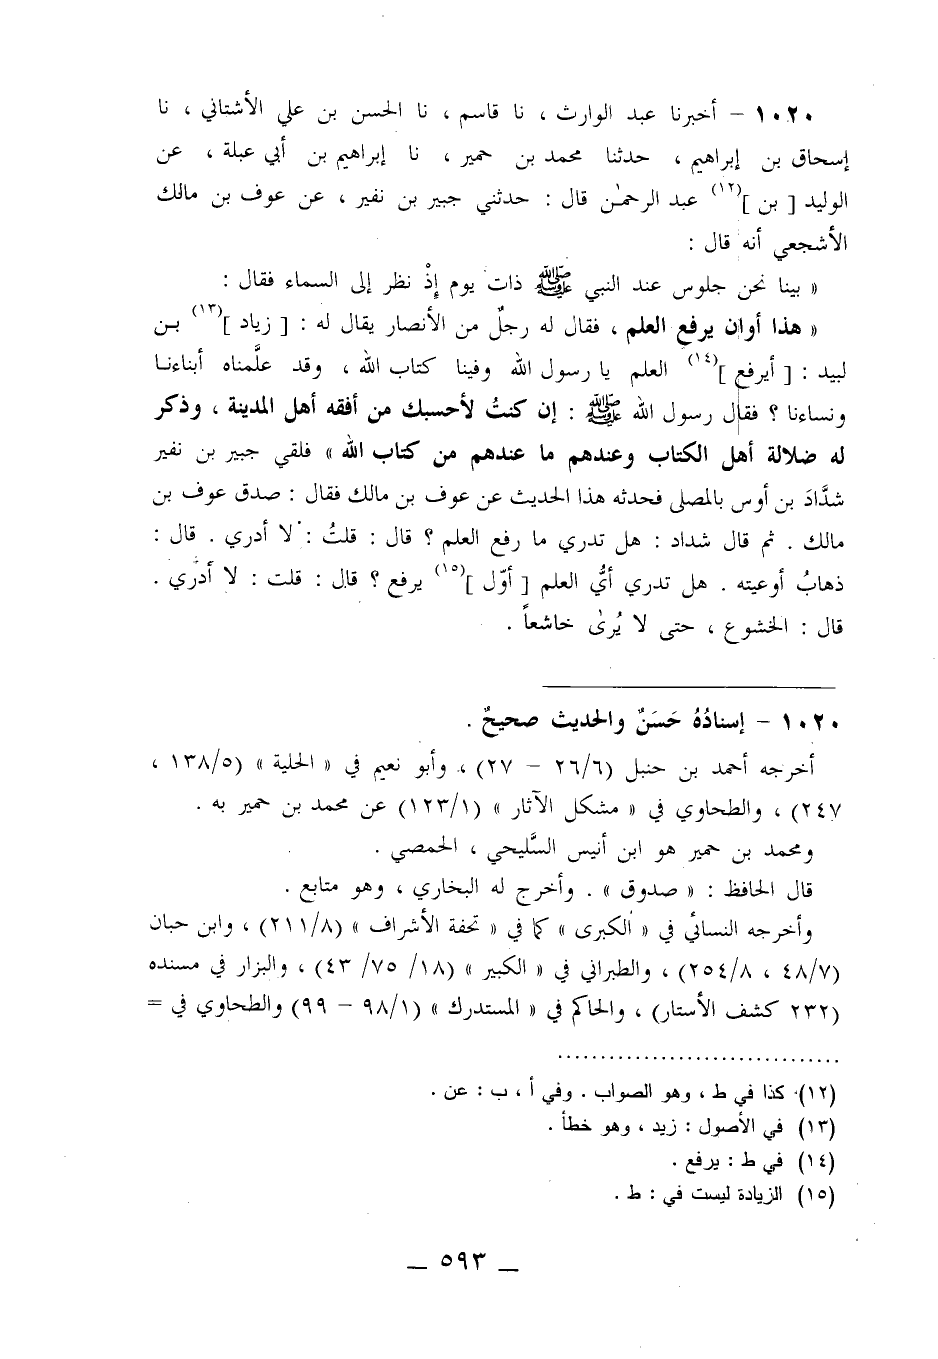 ١٠٢٠ – أخبرنا عبد الوارث ، نا قاسم ، نا الحسن بن علي الأشتاني ، نا
إسحاق بن إبراهيم ، حدثنا محمد بن حمير ، نا إبراهيم بن أبي عبلة ، عن
الوليد [ بن ](١٢) عبد الرحمٰن قال : حدثني جبير بن نفير ، عن عوف بن مالك
الأشجعي أنه قال :
« بينا نحن جلوس عند النبي ﷺ ذات يوم إذْ نظر إلى السماء فقال :
« هذا أوان يرفع العلم ، فقال له رجلٌ من الأنصار يقال له : [ زياد ](١٣) بن
لبيد : [ أيرفع ](١٤) العلم يا رسول الله وفينا كتاب الله ، وقد علَّمناه أبناءنا
ونساءنا ؟ فقال رسول الله ﷺ : إن كنتُ لأحسبك من أفقه أهل المدينة ، وذكر
له ضلالة أهل الكتاب وعندهم ما عندهم من كتاب الله » فلقي جبير بن نفير
شدَّادَ بن أوس بالمصلى فحدثه هذا الحديث عن عوف بن مالك فقال : صدق عوف بن
مالك . ثم قال شداد : هل تدري ما رفع العلم ؟ قال : قلتُ : لا أدري . قال :
ذهابُ أوعيته . هل تدري أيُّ العلم [ أوّل ](١٥) يرفع ؟ قال : قلت : لا أدري .
قال : الخشوع ، حتى لا يُرىٰ خاشعاً .
١٠٢٠ – إسنادُهُ حَسَنٌ والحديث صحيحٌ .
أخرجه أحمد بن حنبل (٢٦/٦ – ٢٧) ، وأبو نعيم في « الحلية » (١٣٨/٥ ،
٢٤٧) ، والطحاوي في « مشكل الآثار » (١٢٣/١) عن محمد بن حمير به .
ومحمد بن حمير هو ابن أنيس السَّليحي ، الحمصي .
قال الحافظ : « صدوق » . وأخرج له البخاري ، وهو متابع .
وأخرجه النسائي في « الكبرى » كما في « تحفة الأشراف » (٢١١/٨) ، وابن حبان
(٤٨/٧ ، ٢٥٤/٨) ، والطبراني في « الكبير » (١٨/ ٧٥/ ٤٣) ، والبزار في مسنده
(٢٣٢ كشف الأستار) ، والحاكم في « المستدرك » (٩٨/١ – ٩٩) والطحاوي في =
(١٢) كذا في ط ، وهو الصواب . وفي أ ، ب : عن .
(١٣) في الأصول : زيد ، وهو خطأ .
(١٤) في ط : يرفع .
(١٥) الزيادة ليست في : ط .
_ ٥٩٣ _